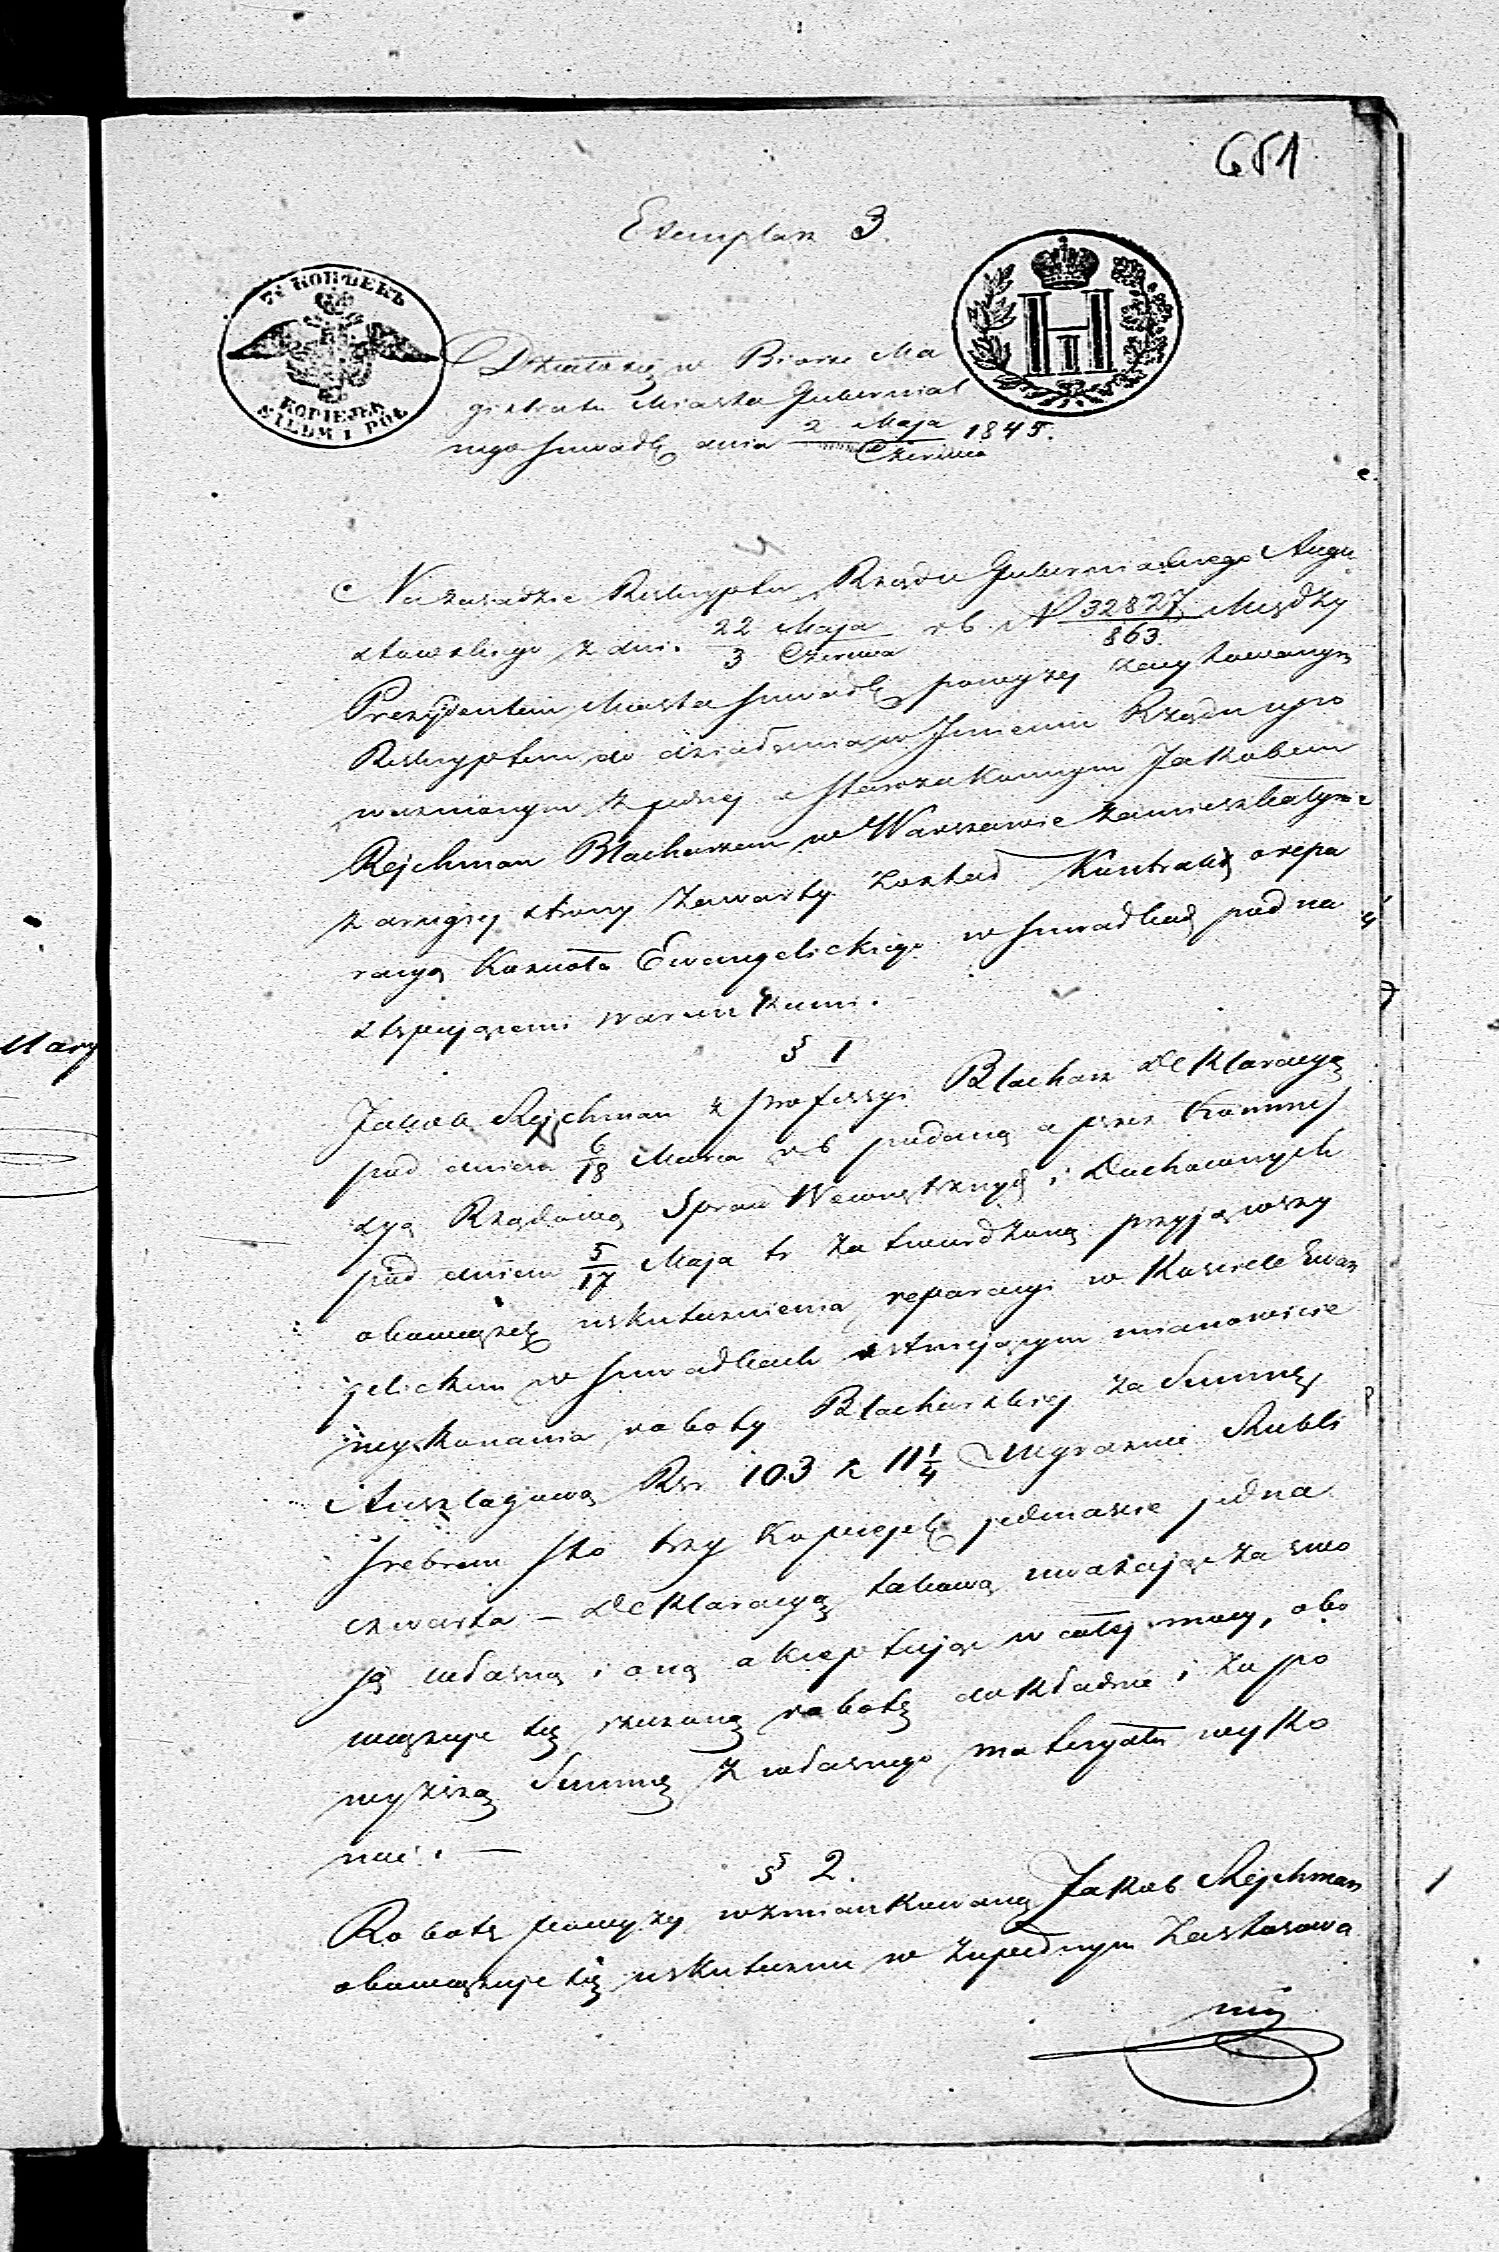 651
Exemplarz 3.
7½ КОПѢЕКЪ
KOPIEJEK
SIEDM I PÓŁ
H I
Działo się w Biórze Ma
gistratu Miasta Gubernial
nego Suwałk dnia 2 Maja / Czerwca 1845.
Na zasadzie Reskryptu Rządu Gubernialnego Augu
stowskiego z dnia 22 Maja / 3 Czerwca r b. N 32827/863 Między
Prezydentem Miasta Suwałk powyżej zacytowanym
Reskryptem do działania w Imieniu Rządu upo
ważnionym z jednej a Starozakonnym Jakobem
Rejchman Blacharzem w Warszawie zamieszkałym
z drugiej strony zawarty został Kontrakt o repa
racyą Kościoła Ewangelickiego w Suwałkach pod na
stępującemi warunkami.
§ 1
Jakob Rejchman z professyi Blacharz Deklaracyą
pod dniem 6/18 Marca r b podaną a przez Kommis
syą Rządową Spraw Wewnętrznych i Duchownych
pod dniem 5/17 Maja tr zatwierdzoną przyjąwszy
obowiązek uskutecznienia reparacyi w Kościele Ewan
gelickim w Suwałkach istniejącym mianowicie
wykonania roboty Blacharskiej za Summę
Anszlagową Rsr 103 k 11 1/4 Wyraźnie Rubli
Srebrem Sto trzy Kopiejek jedenaście jedna
czwarta – Deklaracyą takową uważając za swo
ją własną i oną akceptując w całej mocy, obo
wiązuje się rzeczoną robotę dokładnie i za po
wyższą Summę z własnego materyału wyko
nać. —
§ 2.
Robotę powyżej wzmiankowaną Jakob Rejchman
obowiązuje się uskutecznić w zupełnym zastosowa
niu